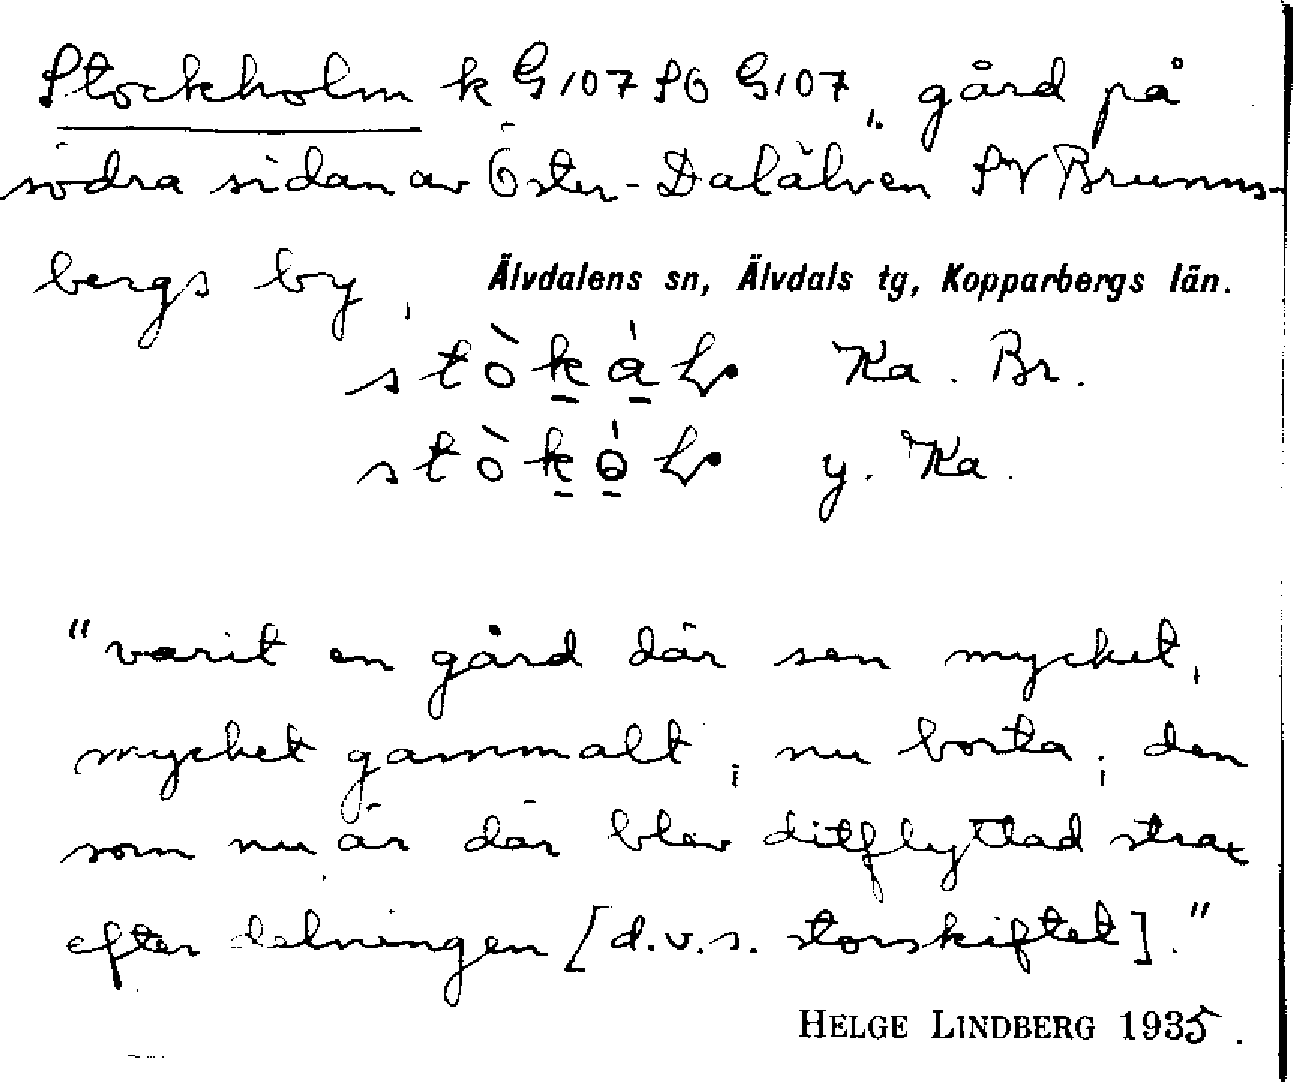 Stockholm k G107 SO G107, gård på
södra sidan av Öster-Dalälven SV Brunns-
bergs by, Älvdalens sn, Älvdals tg, Kopparbergs län.
Ka. Br.
y. Ka.
"varit en gård där sen mycket,
mycket gammalt; nu borta; den
som nu är där blev ditflyttad strax
efter delningen [d.v.s. storskiftet]."
HELGE LINDBERG 1935.